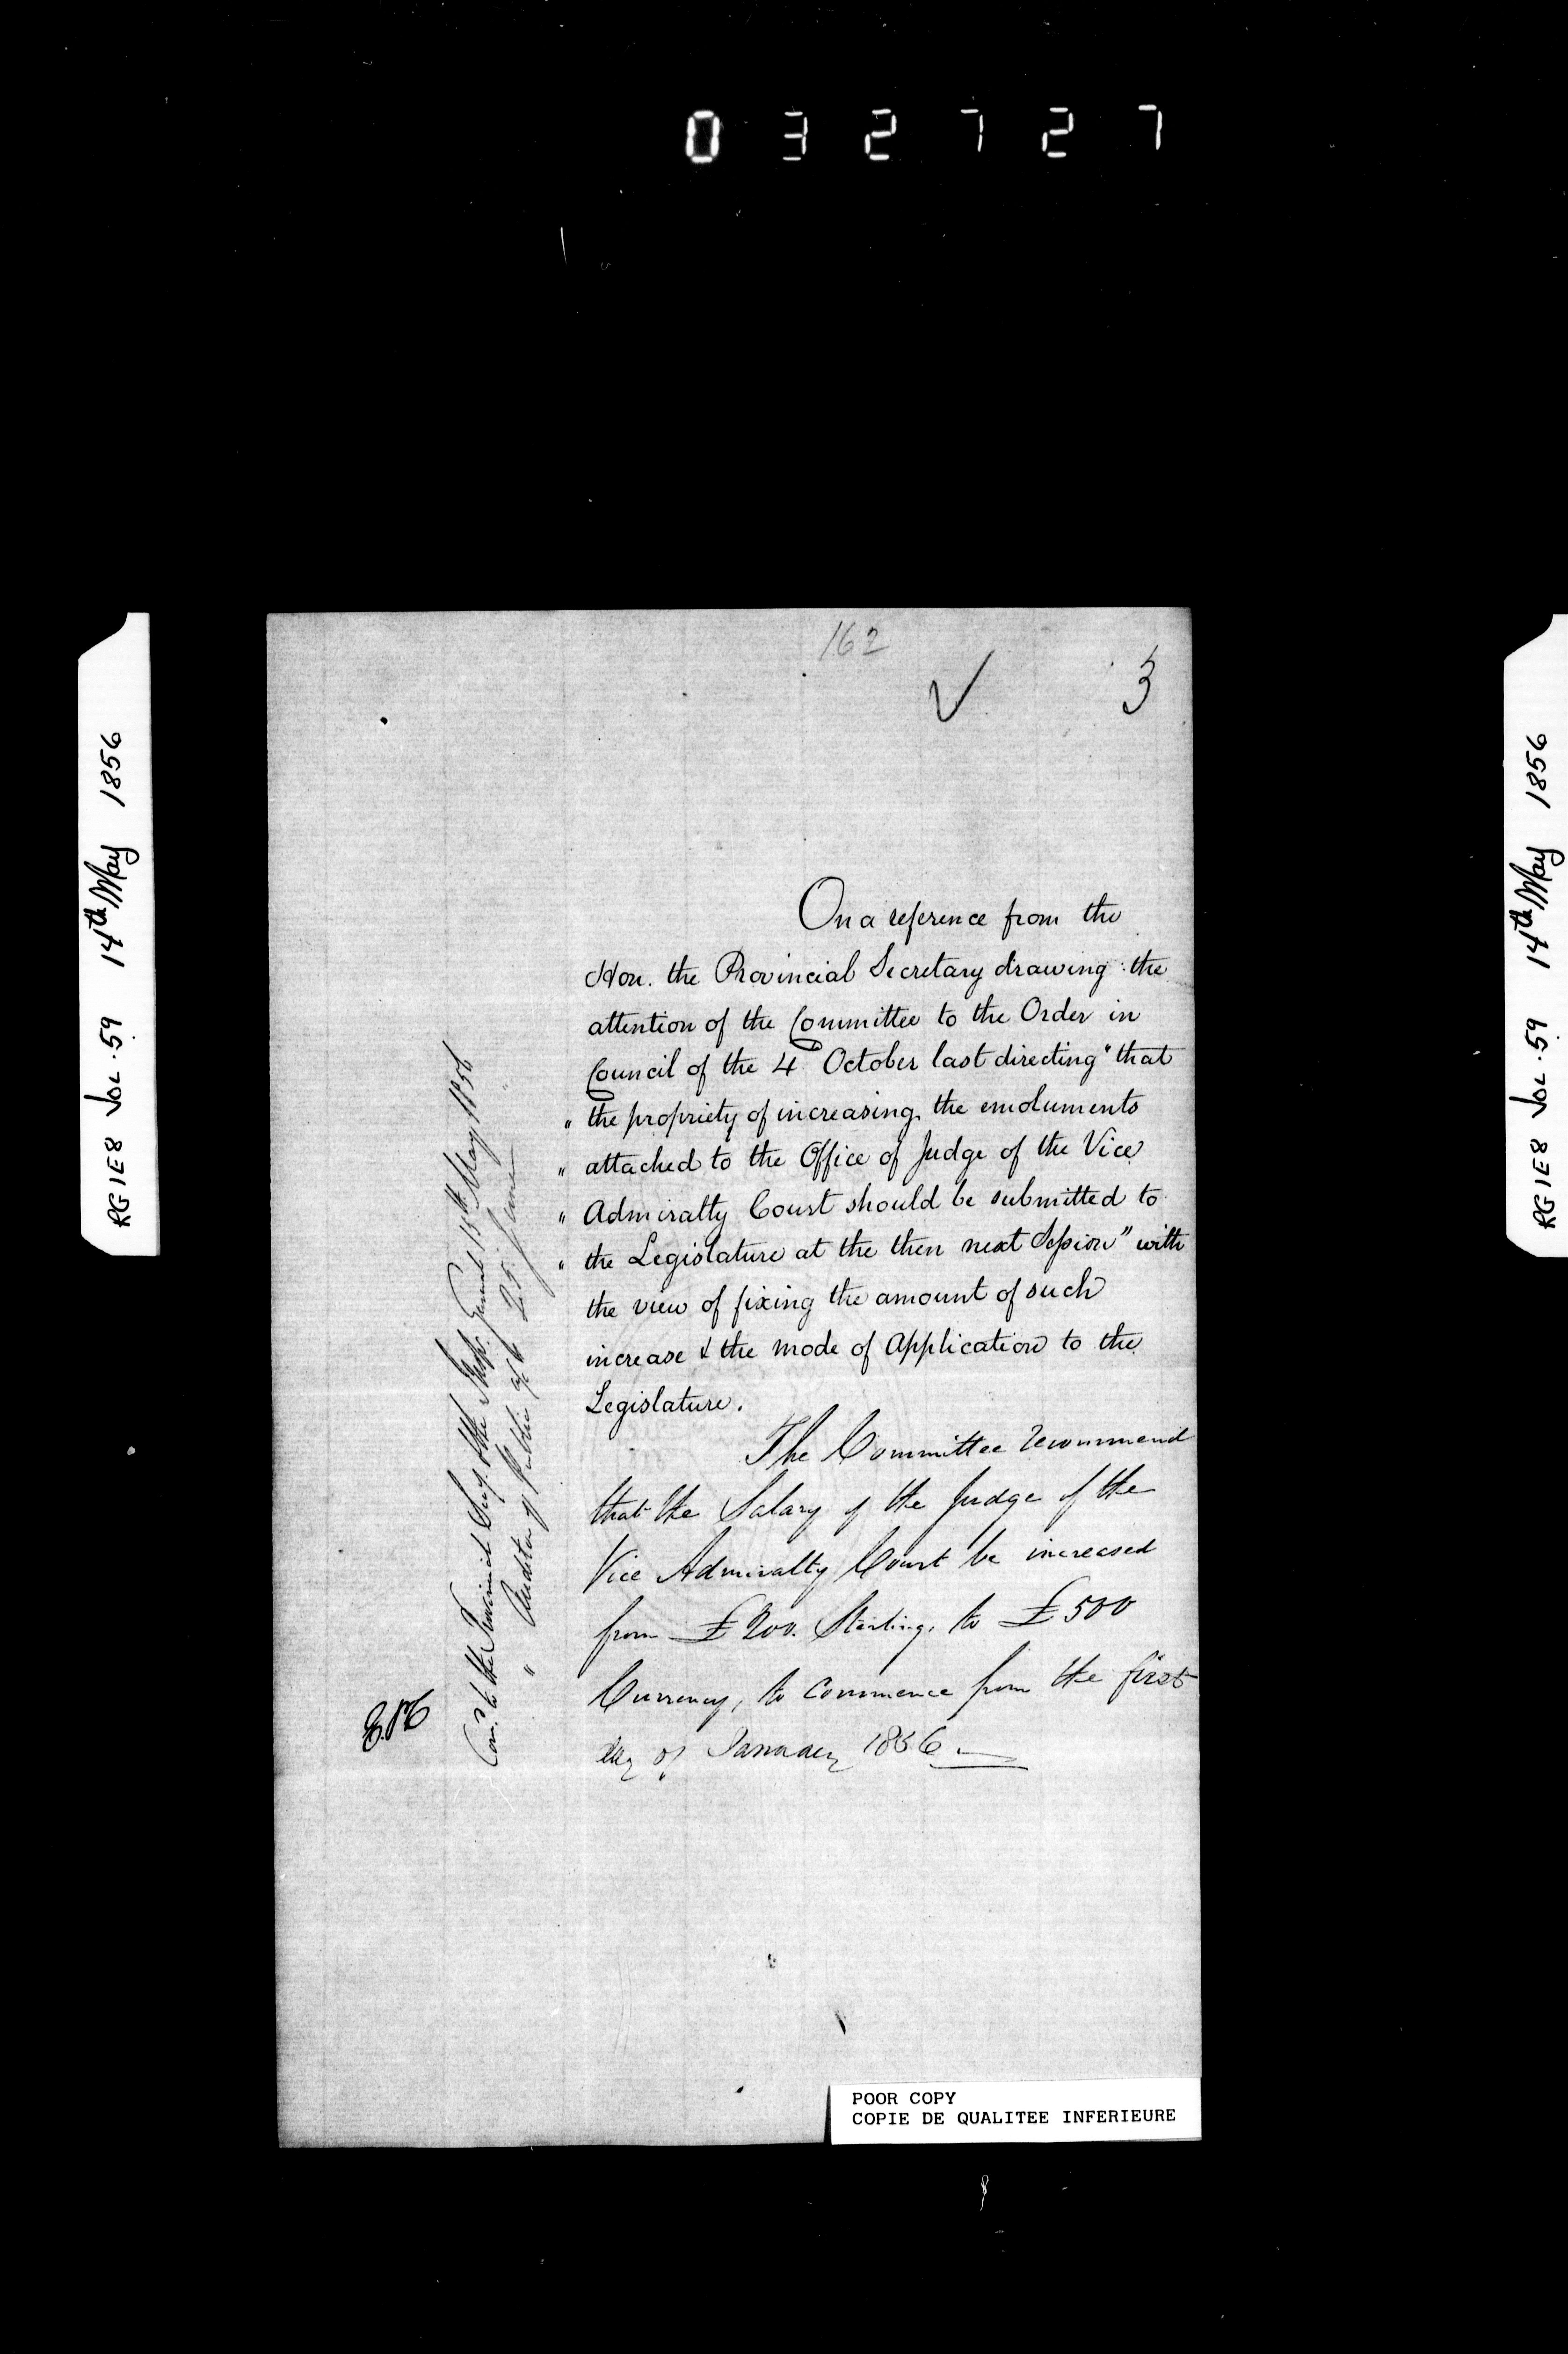 032727
RG1E8 Vol. 59 14th May 1856
162
3
On a reference from the
Hon. the Provincial Secretary drawing the
attention of the Committee to the Order in
Council of the 4 October last directing "that
" the propriety of increasing the emoluments
" attached to the Office of Judge of the Vice
" Admiralty Court should be submitted to
" the Legislature at the then next Session" with
the view of fixing the amount of such
increase & the mode of Application to the
Legislature.
The Committee recommend
that the Salary of the Judge of the
Vice Admiralty Court be increased
from £200. Sterling, to £500
Currency, to commence from the first
day of January 1856
Com.d to the Provincial Secy. & the Insp. General 15th May 1856
" Auditor of Public a/cs 25 June "
RG1E8 Vol. 59 14th May 1856
POOR COPY
COPIE DE QUALITEE INFERIEURE